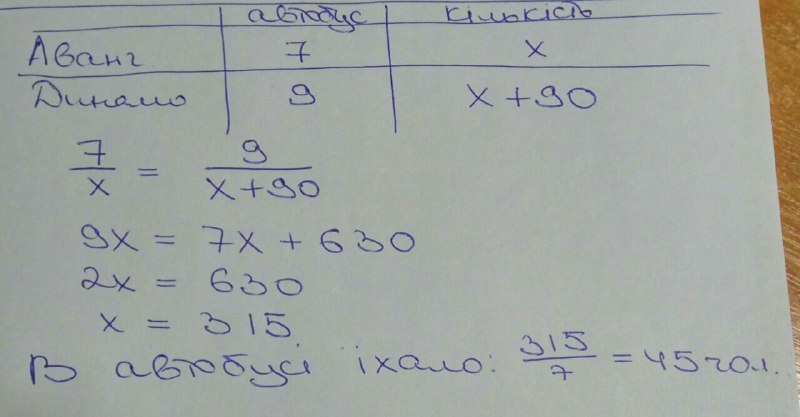 автобус кількість
Аванг. 7 x
Динамо 9 x+90
7/x = 9/(x+90)
9x = 7x + 630
2x = 630
x = 315
В автобусі їхало: 315/7 = 45 чол.